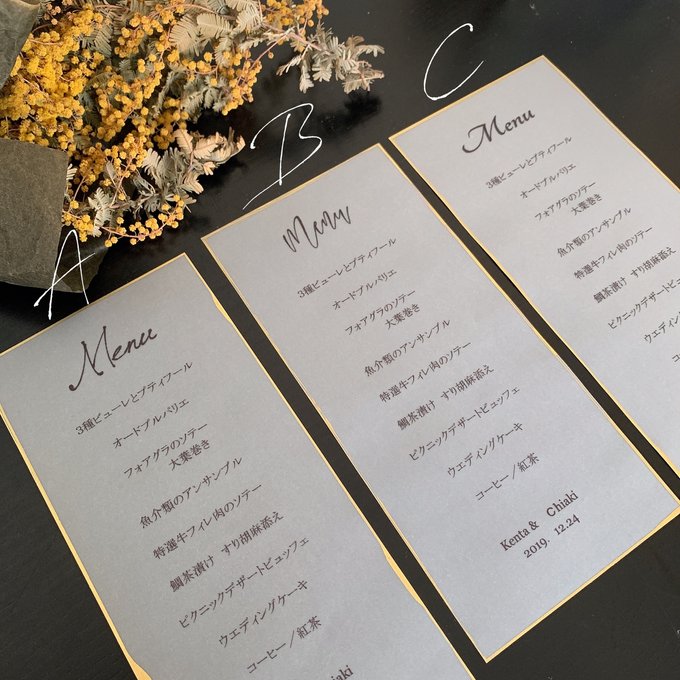 A
Menu
3種ピューレとプティフール
オードブルバリエ
フォアグラのソテー
大葉巻き
魚介類のアンサンブル
特選牛フィレ肉のソテー
鯛茶漬け すり胡麻添え
ピクニックデザートビュッフェ
ウエディングケーキ
コーヒー／紅茶
Chiaki
B
Menu
3種ピューレとプティフール
オードブルバリエ
フォアグラのソテー
大葉巻き
魚介類のアンサンブル
特選牛フィレ肉のソテー
鯛茶漬け すり胡麻添え
ピクニックデザートビュッフェ
ウエディングケーキ
コーヒー／紅茶
Kenta & Chiaki
2019. 12.24
C
Menu
3種ピューレとプティフール
オードブルバリエ
フォアグラのソテー
大葉巻き
魚介類のアンサンブル
特選牛フィレ肉のソテー
鯛茶漬け すり胡麻添え
ピクニックデザートビュ
ウエディング
コー